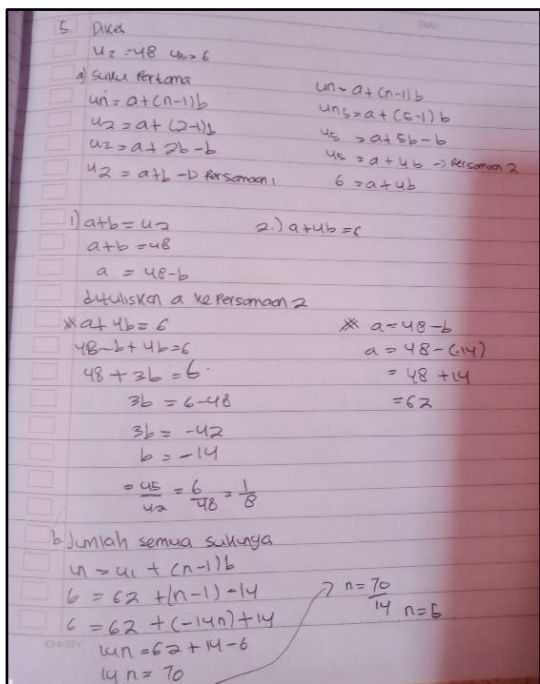 5. Diket
u2 = 48 u5 = 6
a) Suku Pertama
un = a + (n-1)b
u2 = a + (2-1)b
u2 = a + 2b - b
u2 = a+b -D Persamaan 1
un = a + (n-1)b
un5 = a + (5-1)b
u5 = a + 5b - b
u5 = a + 4b -> Persamaan 2
6 = a + 4b
1) a+b = u2
a+b = 48
a = 48-b
2.) a+4b = 6
ditubiskan a ke Persamaan 2
* a + 4b = 6
48 - b + 4b = 6
48 + 3b = 6
3b = 6-48
3b = -42
b = -14
= u5/u2 = 6/48 = 1/8
* a = 48 - b
a = 48 - (-14)
= 48 + 14
= 62
b. Jumlah semua sukunya
un = u1 + (n-1)b
6 = 62 + (n-1) -14
6 = 62 + (-14n) + 14
14n = 62 + 14 - 6
14n = 70
n = 70/14 n = 6